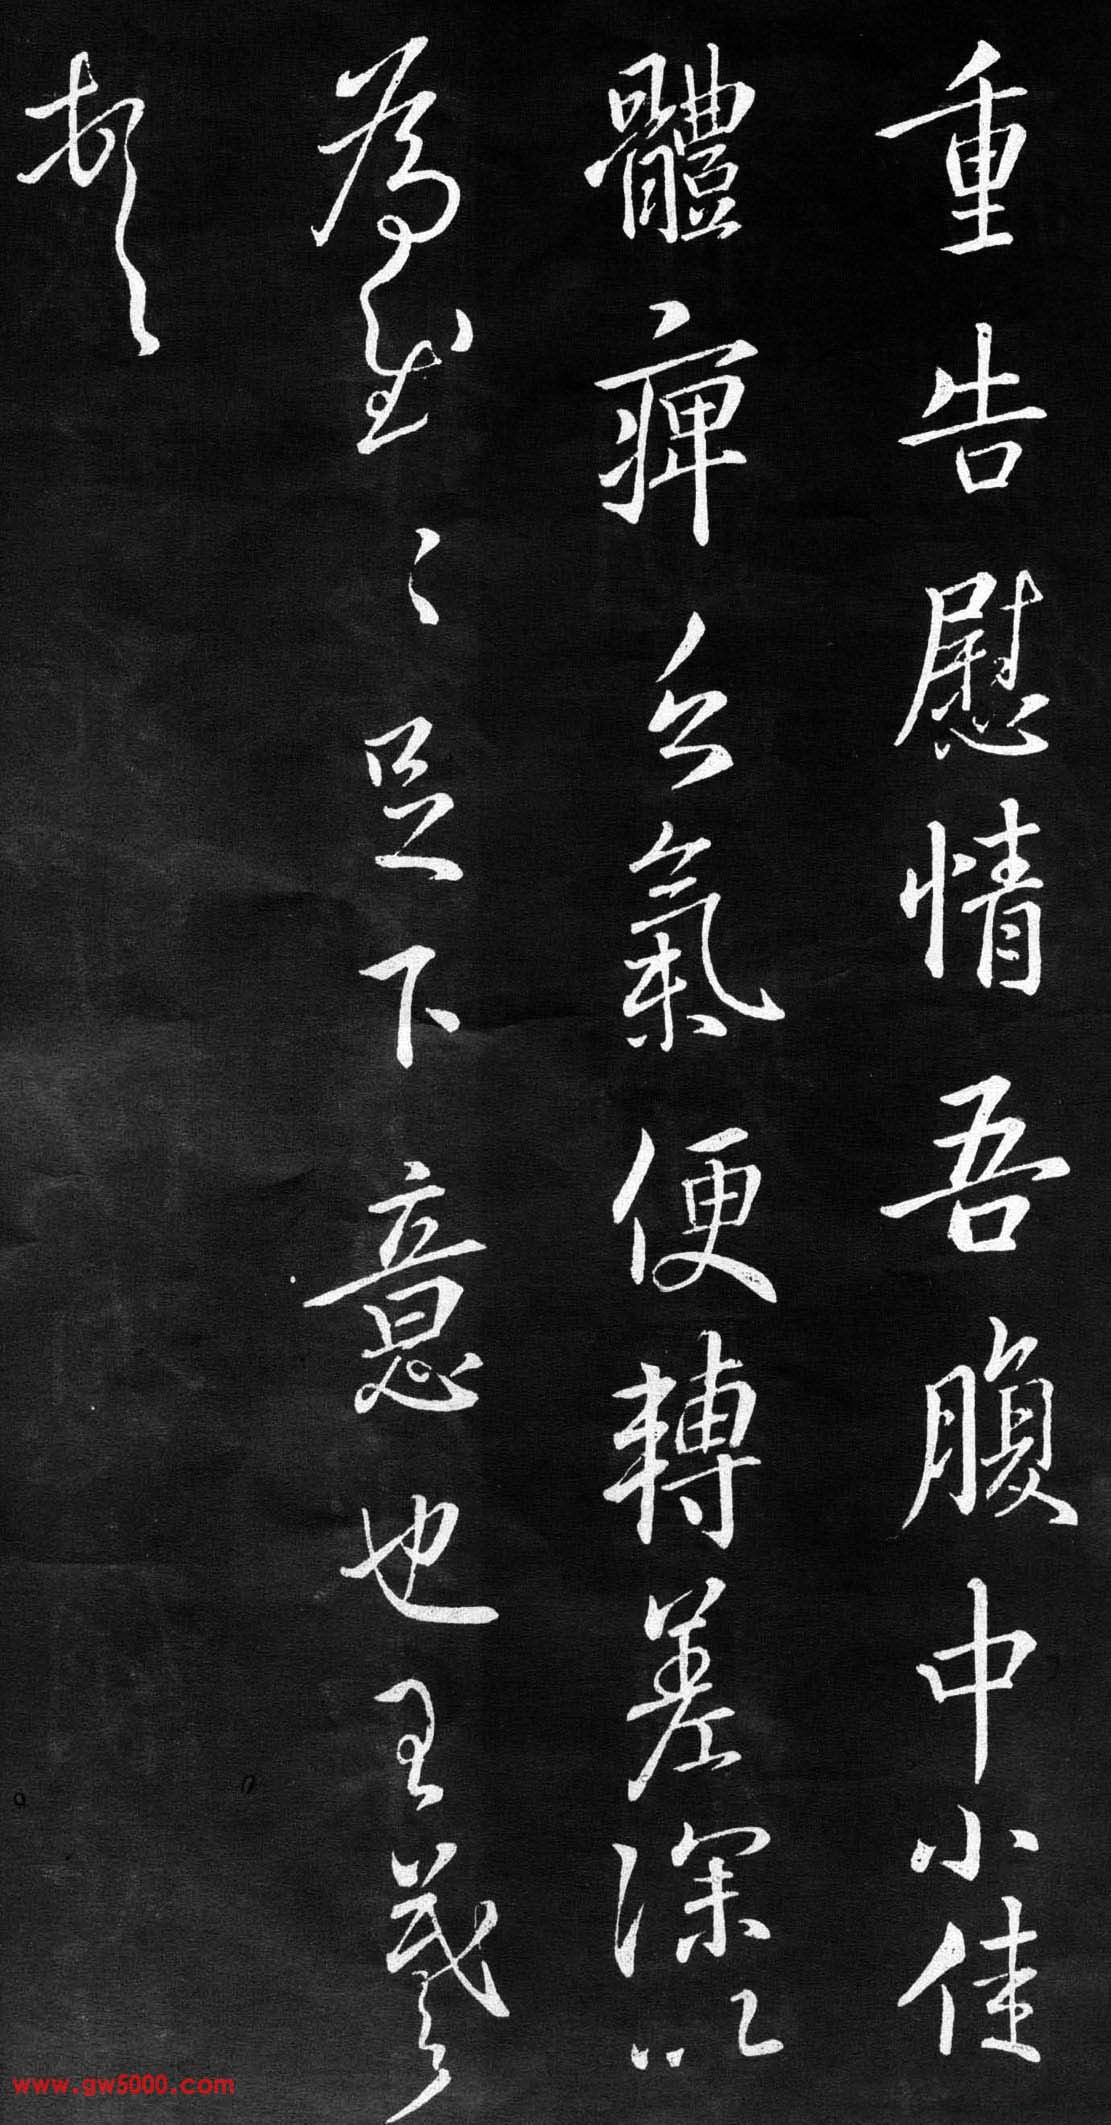 重告慰情吾腹中小佳
體痺氣便轉差深以
為足下意也王羲之
頓首
www.gw5000.com